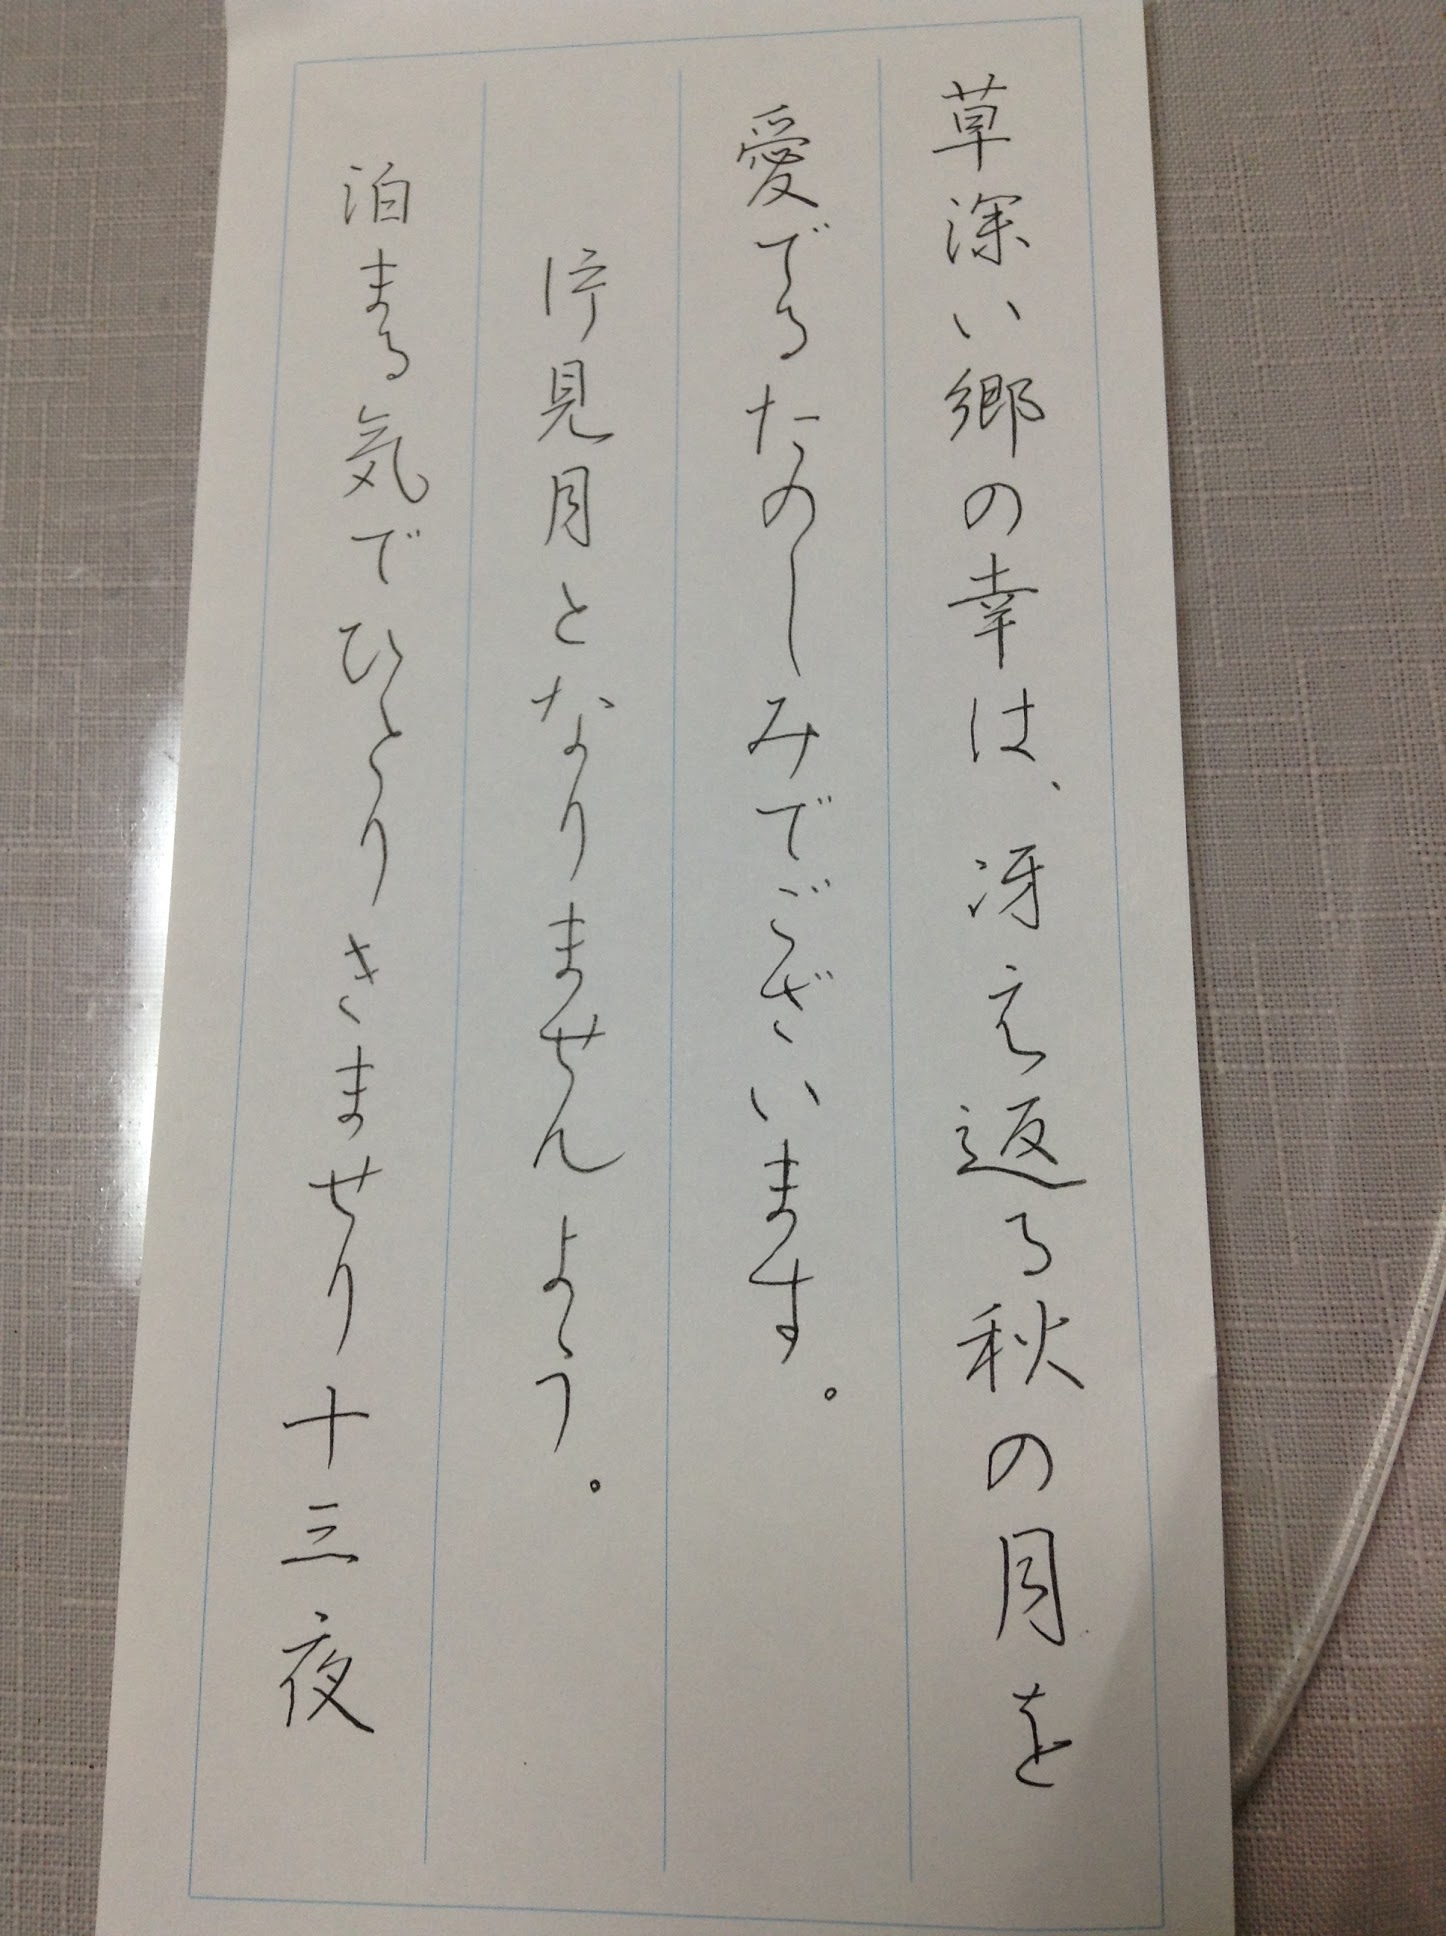 草深い郷の幸は、冴え返る秋の月を
愛でるたのしみでございます。
片見月となりませんよう。
泊まる気でひとりきませり十三夜